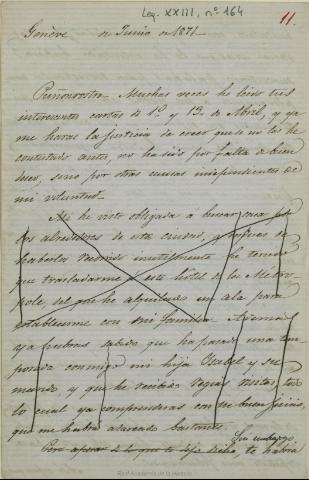 Leg. XXIII, nº 164
11.
Genève de Junio de 1871.
Peñonrostro. Muchas veces he leido tus
interesantes cartas de 1º y 13 de Abril, y ya
me haras la justicia de creer que si no las he
contestado antes, no ha sido por falta de buen
deseo, sino por otras causas independientes de
mi voluntad.
Me he visto obligada á buscar casa por
los alrededores de esta ciudad, y despues de
haberlos recorrido inutilmente he tenido
que trasladarme á este hôtel de la Metro-
pole, del que he alquilado un ala para
establecerme con mi familia. Ademas
ya habras sabido que ha pasado una tem-
porada conmigo mi hija Isabel y su
marido, y que he recibido regias visitas, todo
lo cual ya comprenderas con tu buen juicio,
que me habrá atareado bastante.
Sin embargo,
Pero apesar de lo que te dejo dicho, te habria
Real Academia de la Historia